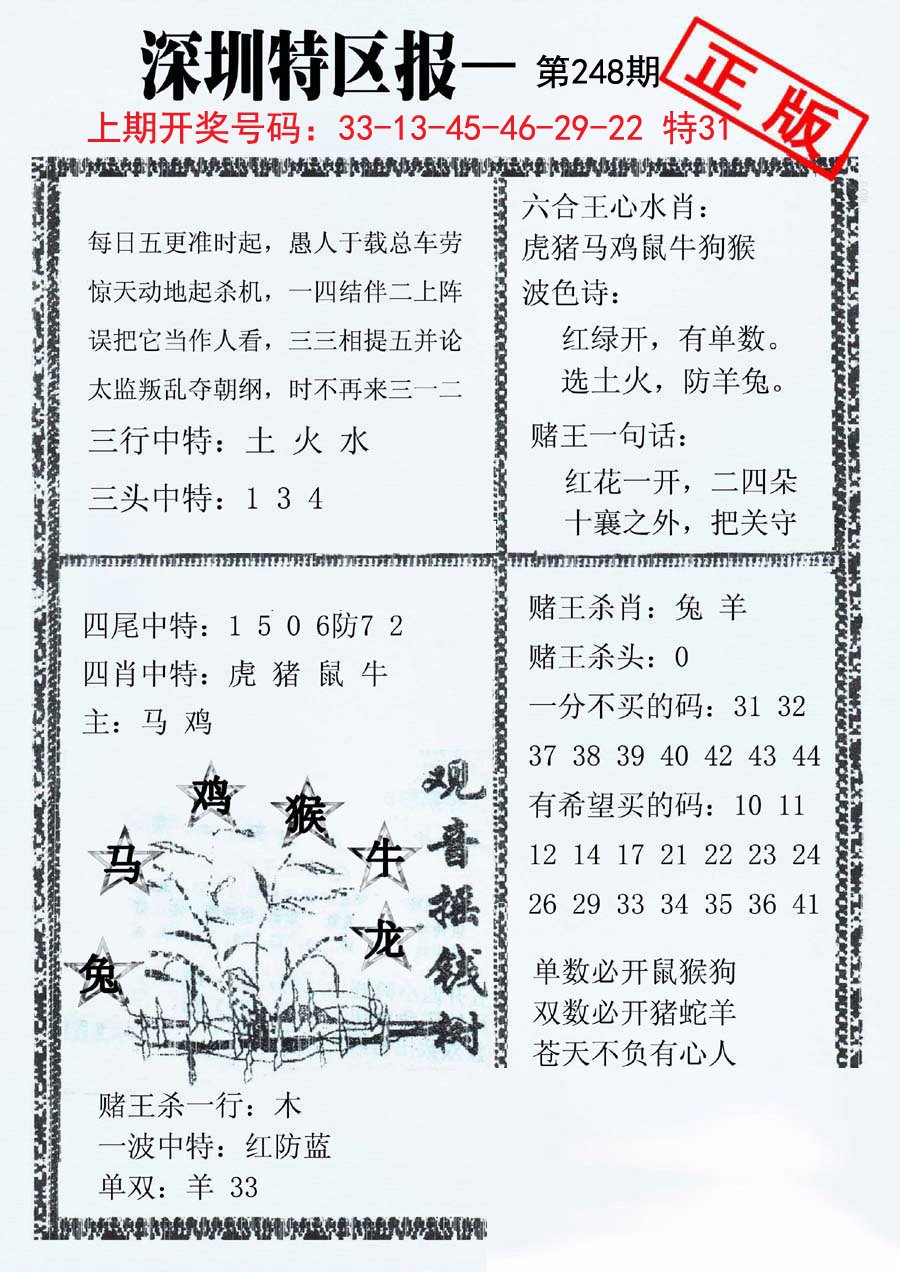 深圳特区报一 第248期
正版
上期开奖号码：33-13-45-46-29-22 特31
每日五更准时起，愚人于载总车劳
惊天动地起杀机，一四结伴二上阵
误把它当作人看，三三相提五并论
太监叛乱夺朝纲，时不再来三一二
三行中特：土 火 水
三头中特：1 3 4
六合王心水肖：
虎猪马鸡鼠牛狗猴
波色诗：
红绿开，有单数。
选土火，防羊兔。
赌王一句话：
红花一开，二四朵
十襄之外，把关守
四尾中特：1 5 0 6防7 2
四肖中特：虎 猪 鼠 牛
主：马 鸡
兔
马
鸡
猴
牛
龙
观音摇钱树
赌王杀一行：木
一波中特：红防蓝
单双：羊 33
赌王杀肖：兔 羊
赌王杀头：0
一分不买的码：31 32
37 38 39 40 42 43 44
有希望买的码：10 11
12 14 17 21 22 23 24
26 29 33 34 35 36 41
单数必开鼠猴狗
双数必开猪蛇羊
苍天不负有心人